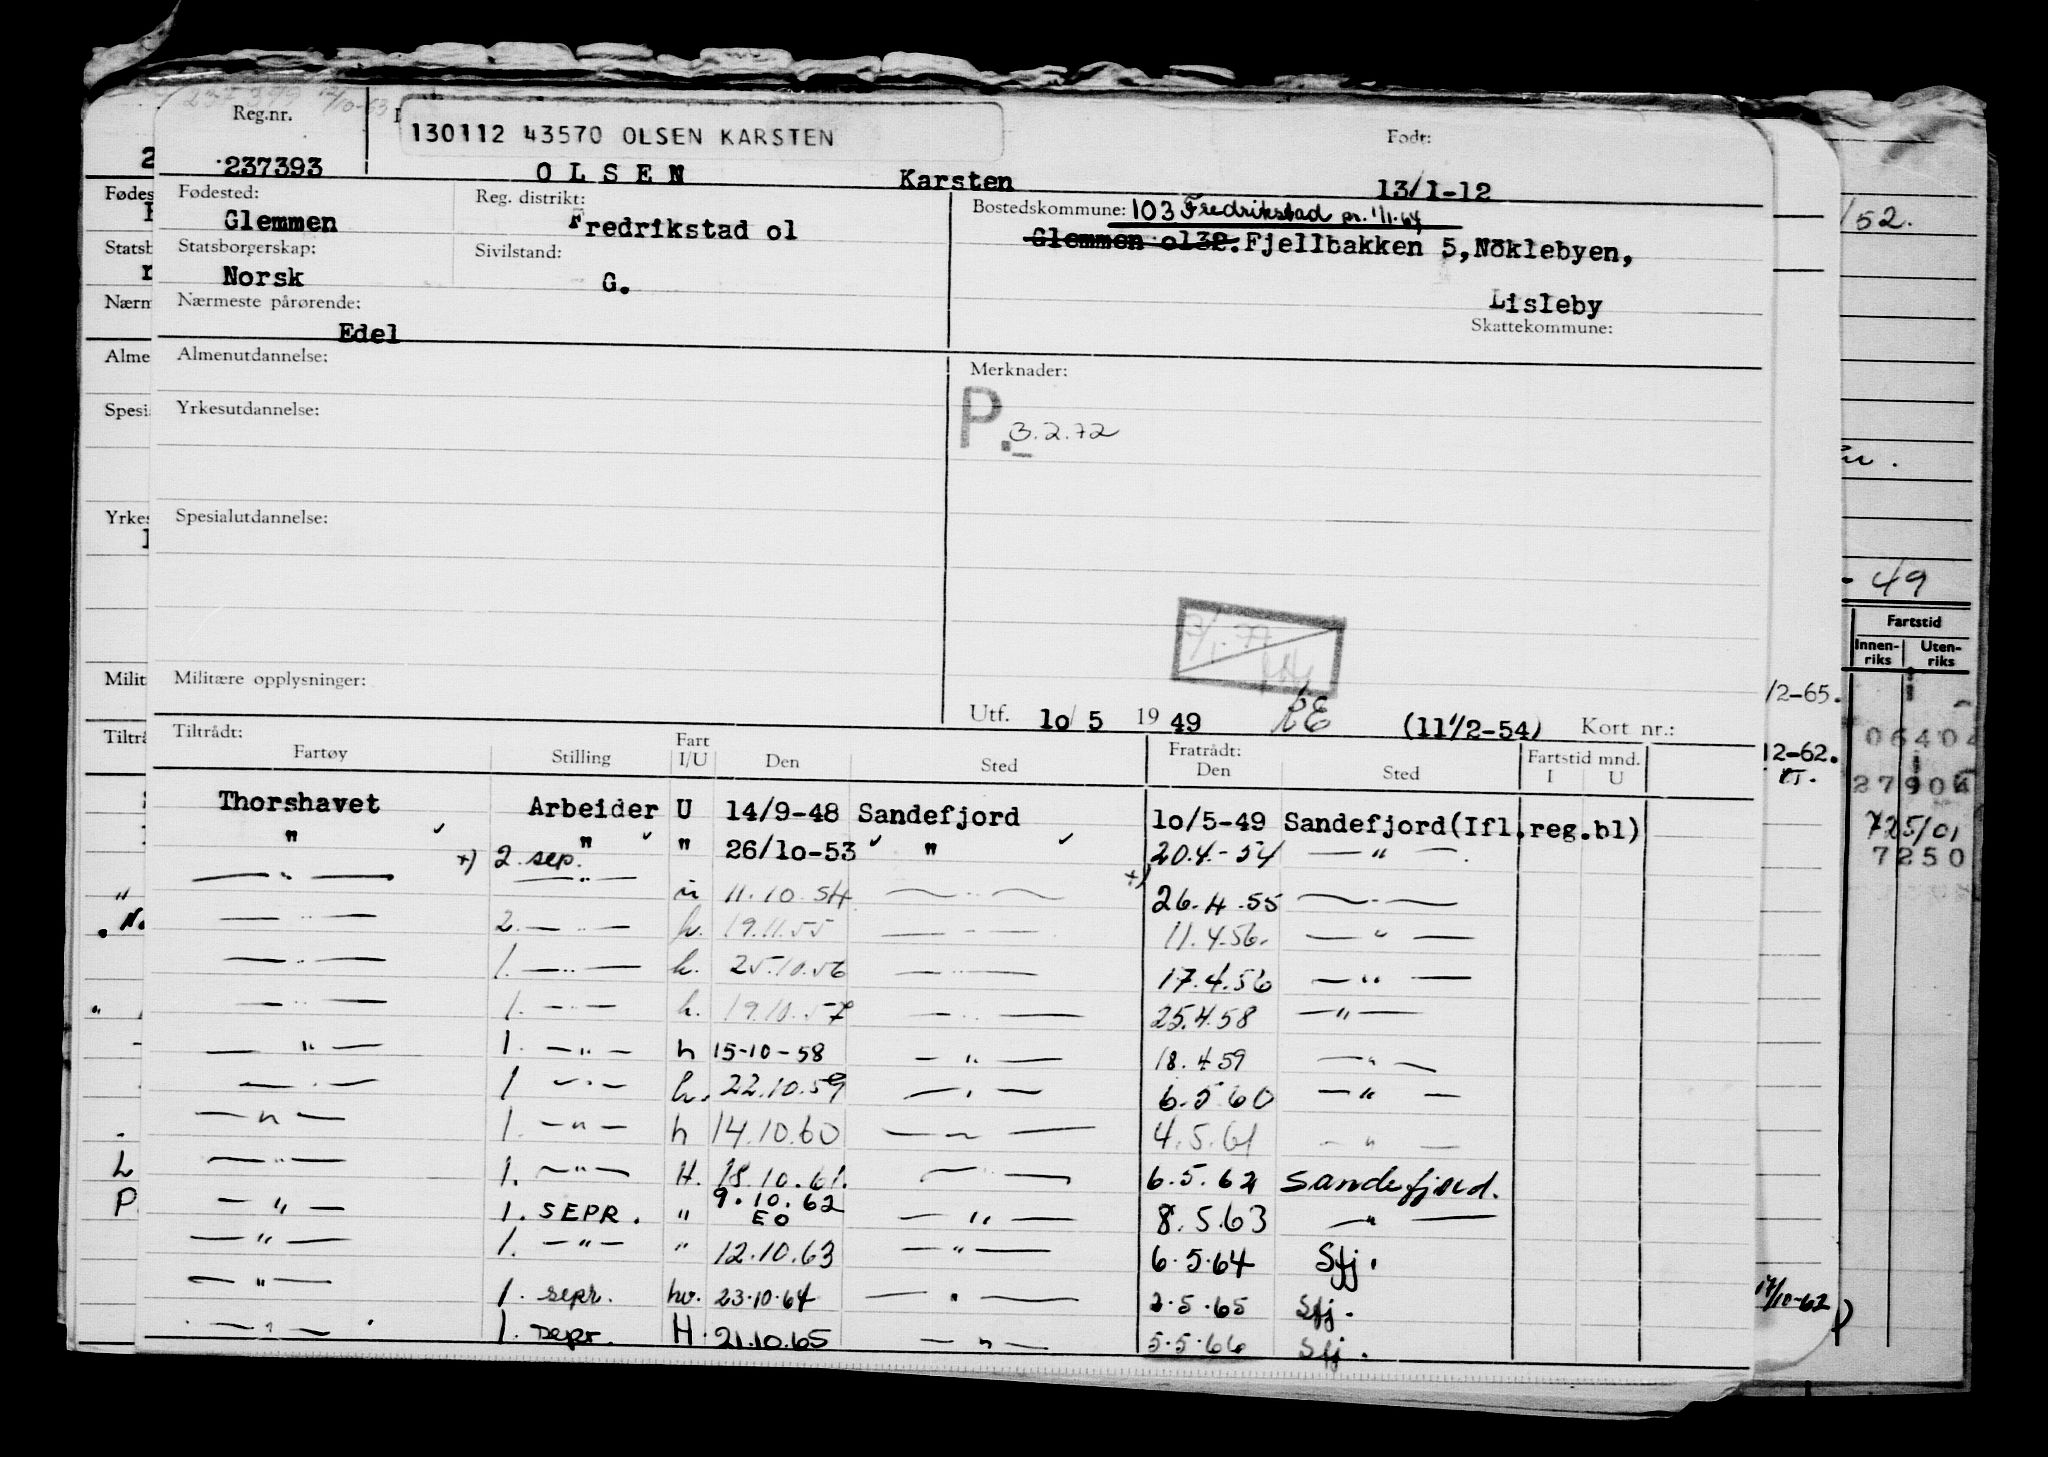 237399 12/10-63
Reg.nr.
130112 43570 OLSEN KARSTEN
Født:
237393 OLSEN Karsten 13/1-12
Fødested: Reg. distrikt: Bostedskommune: 103 Fredrikstad pr. 1/1-64
Glemmen Fredrikstad ol Glemmen ol32. Fjellbakken 5, Nöklebyen,
Statsborgerskap: Sivilstand:
Norsk G. Lisleby
Nærmeste pårørende: Skattekommune:
Edel
Almenutdannelse: Merknader:
P. 3.2.72
Yrkesutdannelse:
Spesialutdannelse:
Militære opplysninger:
Utf. lo/ 5 19 49 (11/2-54) Kort nr.:
Tiltrådt: Fratrådt:
Fartøy Stilling Fart I/U Den Sted Den Sted Fartstid mnd. I U
Thorshavet Arbeider U 14/9-48 Sandefjord lo/5-49 Sandefjord(Ifl.reg.bl)
" " " 26/lo-53 " 20.4.-54 — " —
+) 2. sep.
— " — — " — u 11.10.54 — " — +) 26.4.55 — " —
— " — 2. — " — h. 19.11.55 — " — 11.4.56. — " —
— " — 1. — " — h. 25.10.56 — " — 17.4.56 — " —
— " — 1. — " — h. 19.10.57 — " — 25.4.58 — " —
— " — 1. — " — h 15-10-58 — " — 18.4.59 — " —
— " — 1 — " — h. 22.10.59 — " — 6.5.60 — " —
— " — 1. — " — h 14.10.60 — " — 4.5.61 — " —
— " — 1. — " — H. 18.10.61. — " — 6.5.62 Sandefjord.
— " — 1. SEPR. " 9.10.62 — " — 8.5.63 — " —
EO
— " — 1. — " — " 12.10.63 — " — 6.5.64 Sfj.
— " — 1. sepr. hv. 23.10.64 — " — 2.5.65 Sfj.
— " — 1. sepr. H. 21.10.65 — " — 5.5.66 Sfj.
2
Fødes
Statsb
Nærm
Alme
Spesi
Yrkes
Milit
Tiltrå
L
P
/52.
- 49
Fartstid
Innen-riks Uten-riks
/2-65.
06404
12-62.
27904
725/01
7250
17/10-62